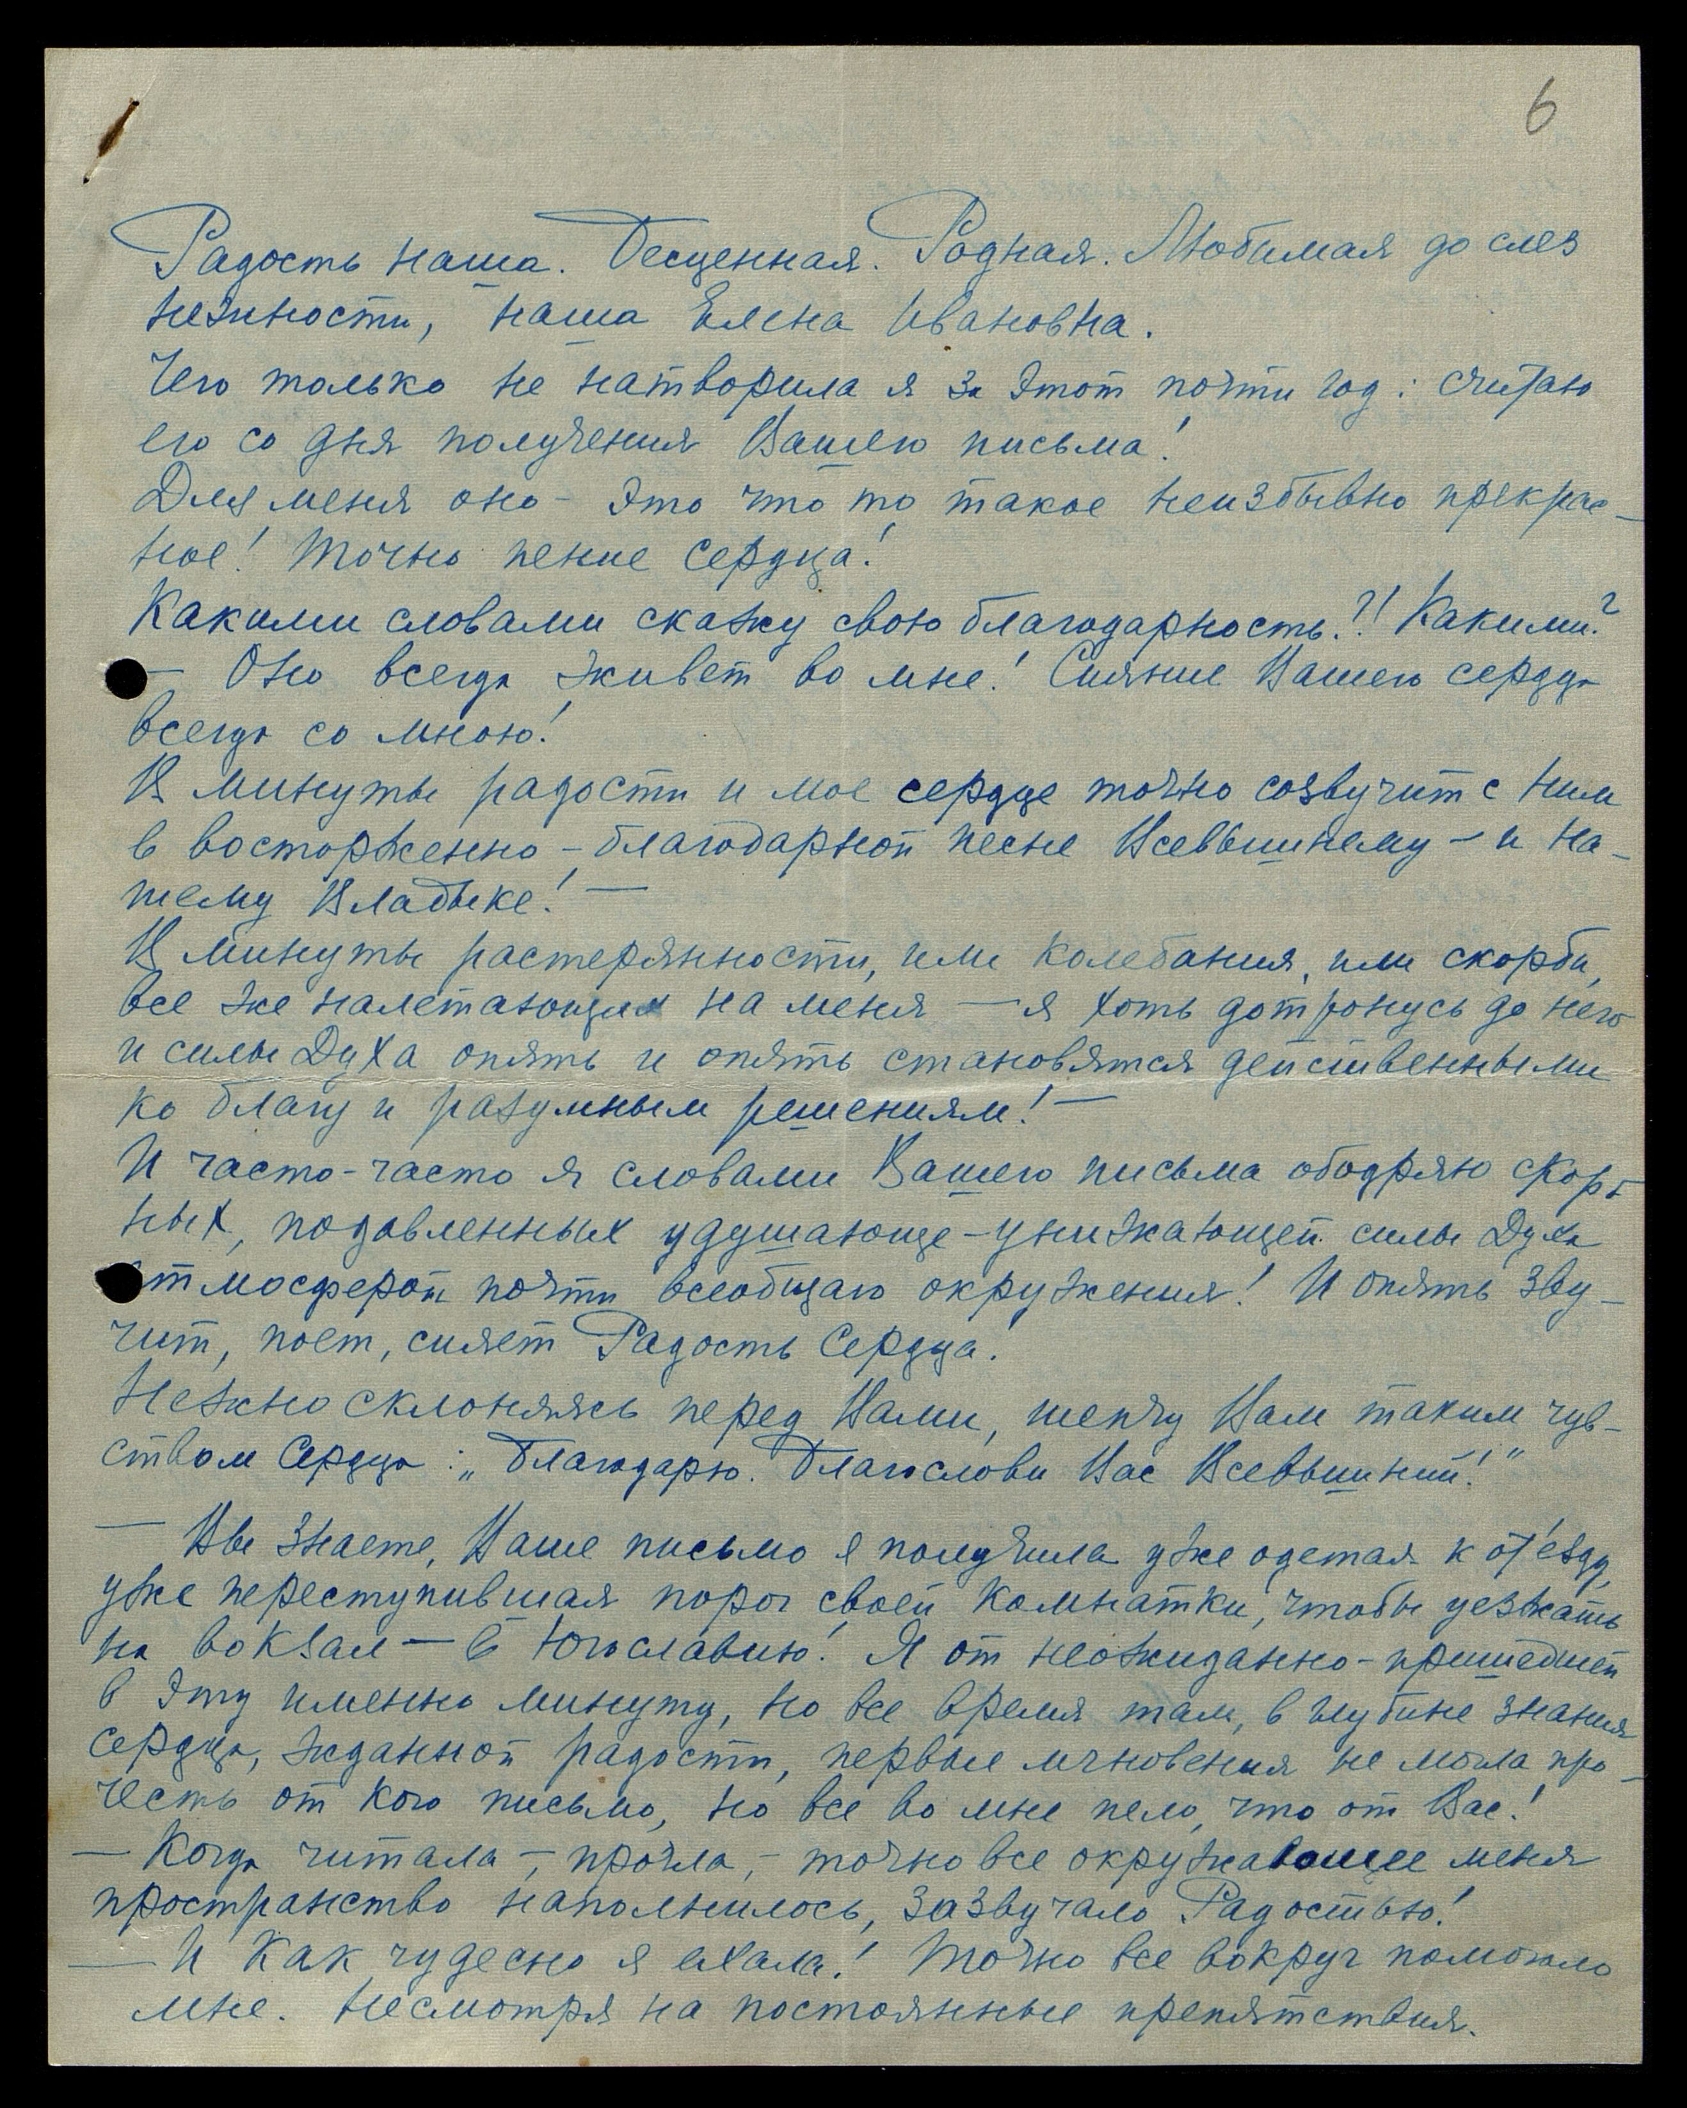 6
Радость наша. Бесценная. Родная. Любимая до слез
нежности, наша Елена Ивановна.
Чего только не натворила я за этот почти год: считаю
его со дня получения Вашего письма!
Для меня оно – это что то такое неизбывно прекрас–
ное! Точно пение сердца!
Какими словами скажу свою благодарность?! Какими?
– Оно всегда живет во мне! Сияние Вашего сердца
всегда со мною!
В минуты радости и мое сердце точно созвучит с ним
в восторженно–благодарной песне Всевышнему – и На–
шему Владыке! –
В минуты растерянности, или колебания, или скорби,
все же налетающих на меня – я хоть дотронусь до него
и силы Духа опять и опять становятся действенными
ко благу и разумным решениям! –
И часто-часто я словами Вашего письма ободряю скорб
ных, подавленных удушающе–унижающей силы Духа
атмосферой почти всеобщаго окружения! И опять зву–
чит, поет, сияет Радость Сердца!
Нежно склоняясь перед Вами, шепчу Вам таким чув–
ством Сердца: „Благодарю. Благослови Вас Всевышний!"
– Вы знаете, Ваше письмо я получила уже одетая к от'езду,
уже переступившая порог своей комнатки, чтобы уезжать
на вокзал – в Югославию! Я от неожиданно–пришедшей
в эту именно минуту, но все время там, в глубине знания
сердца, жданной радости, первые мгновения не могла про–
честь от кого письмо, но все во мне пело, что от Вас!
– Когда читала –, прочла, – точно все окружающее меня
пространство наполнилось, зазвучало Радостью!
– И как чудесно я ехала! Точно все вокруг помогало
мне. Несмотря на постоянные препятствия.